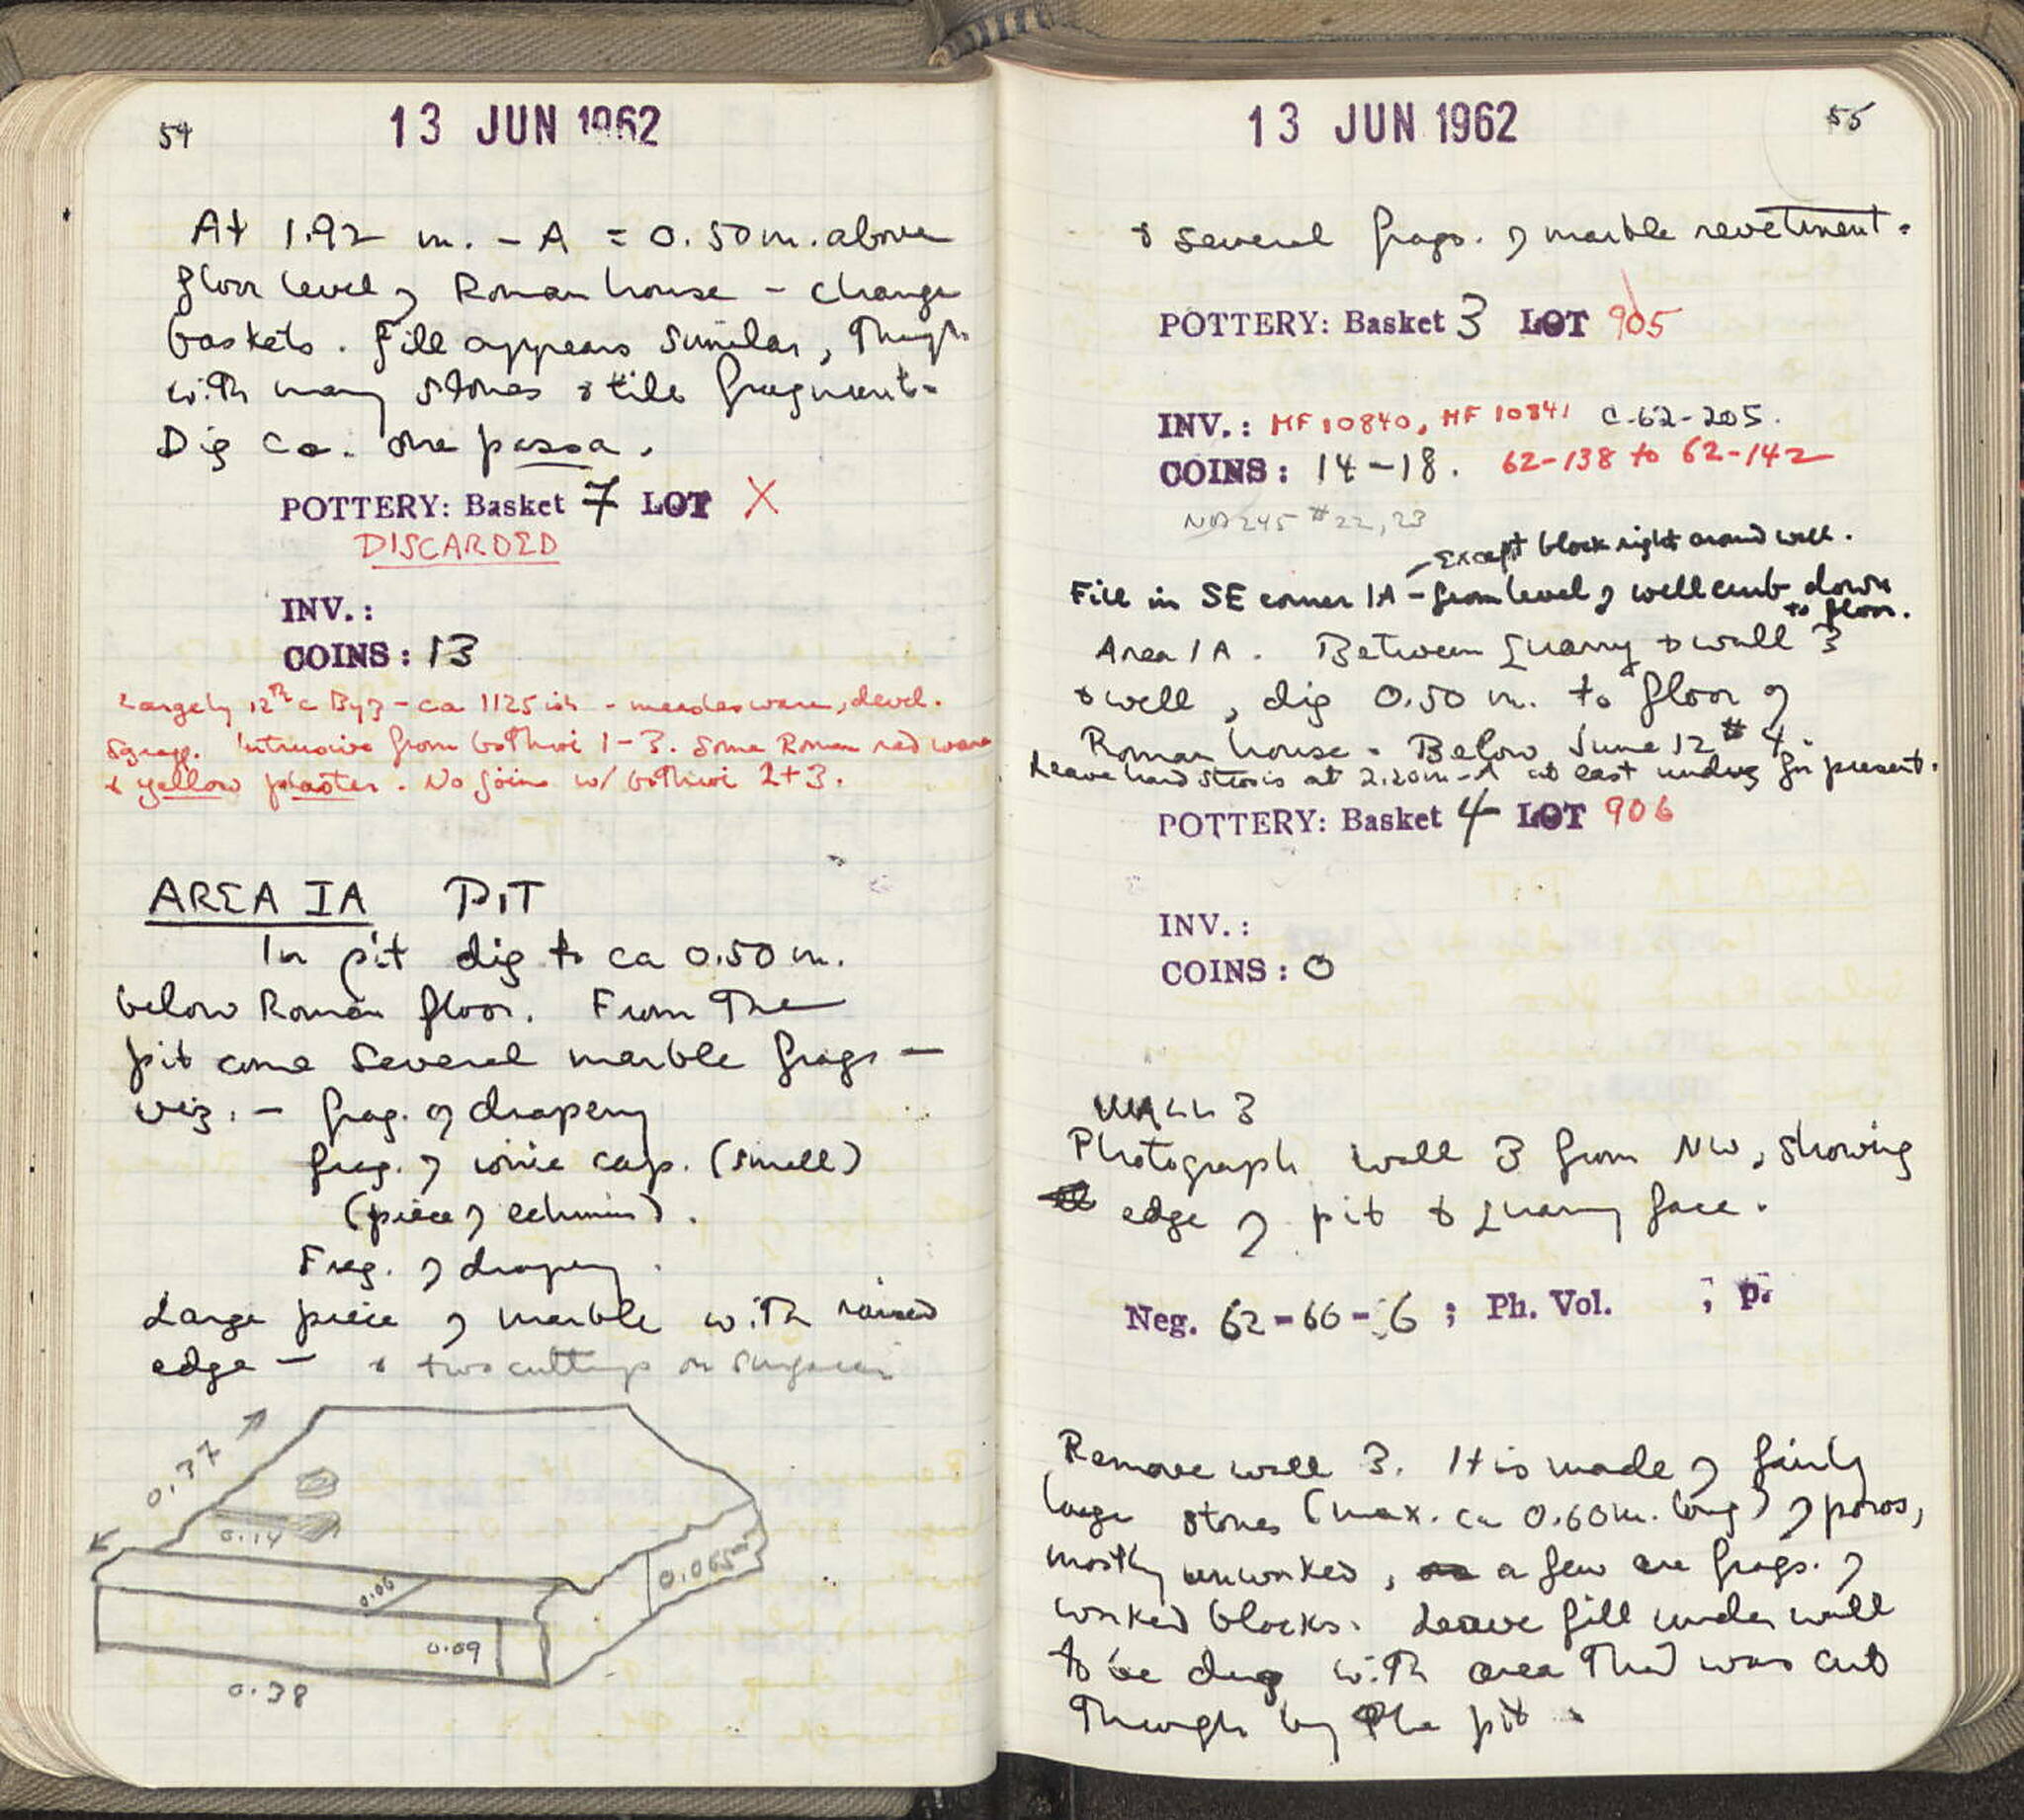 54
13 JUN 1962
At 1.92 m. - A = 0.50 m. above
floor level of Roman house - change
baskets. Fill appears similar, though
with many stones & tile fragments.
Dig ca. one passa.
POTTERY: Basket 7 LOT X
DISCARDED
INV.:
COINS: 13
Largely 12th c Byz - ca 1125 ish - measles ware, devel.
sgraff. Intrusive from bothroi 1-3. Some Roman red ware
& yellow plaster. No joins w/ bothroi 2+3.
AREA IA PIT
In pit dig to ca 0.50 m.
below Roman floor. From the
pit come several marble frags -
viz. - frag. of drapery
frag. of ionic cap. (small)
(piece of echinus).
Frag. of drapery.
Large piece of marble with raised
edge - & two cuttings on surface
0.37
0.14
0.06
0.065
0.09
0.38
55
13 JUN 1962
& several frags. of marble revetment.
POTTERY: Basket 3 LOT 905
INV.: MF 10840, MF 10841 C-62-205.
COINS: 14-18. 62-138 to 62-142
NB 245 #22, 23
- Except block right around well.
Fill in SE corner IA - from level of well curb down
to floor.
Area IA. Between Quarry & wall 3
& well, dig 0.50 m. to floor of
Roman house. Below June 12 #4.
Leave hard stereo is at 2.20m-A at east undug for present.
POTTERY: Basket 4 LOT 906
INV.:
COINS: 0
WALL 3
Photograph wall 3 from NW, showing
edge of pit & quarry face.
Neg. 62-66-6 ; Ph. Vol. ; p.
Remove wall 3. It is made of fairly
large stones (max. ca 0.60m. long) of poros,
mostly unworked, a few are frags. of
worked blocks. Leave fill under wall
to be dug with area that was cut
through by the pit.